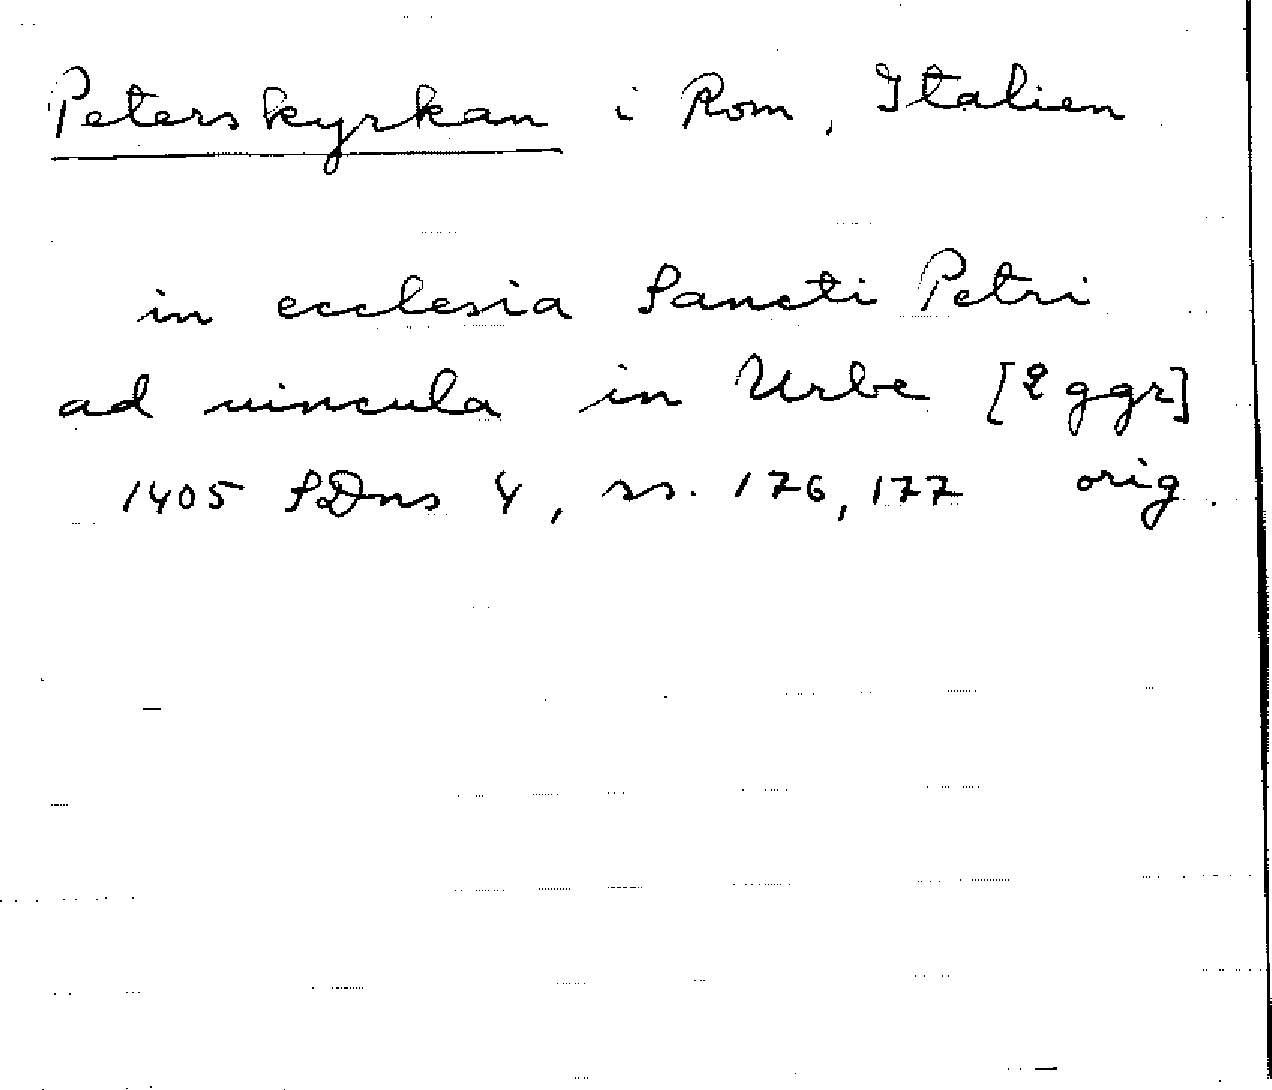 Peterskyrkan i Rom, Italien
in ecclesia Sancti Petri
ad vincula in Urbe [2 ggr]
1405 SDns 4, ss. 176, 177 orig.